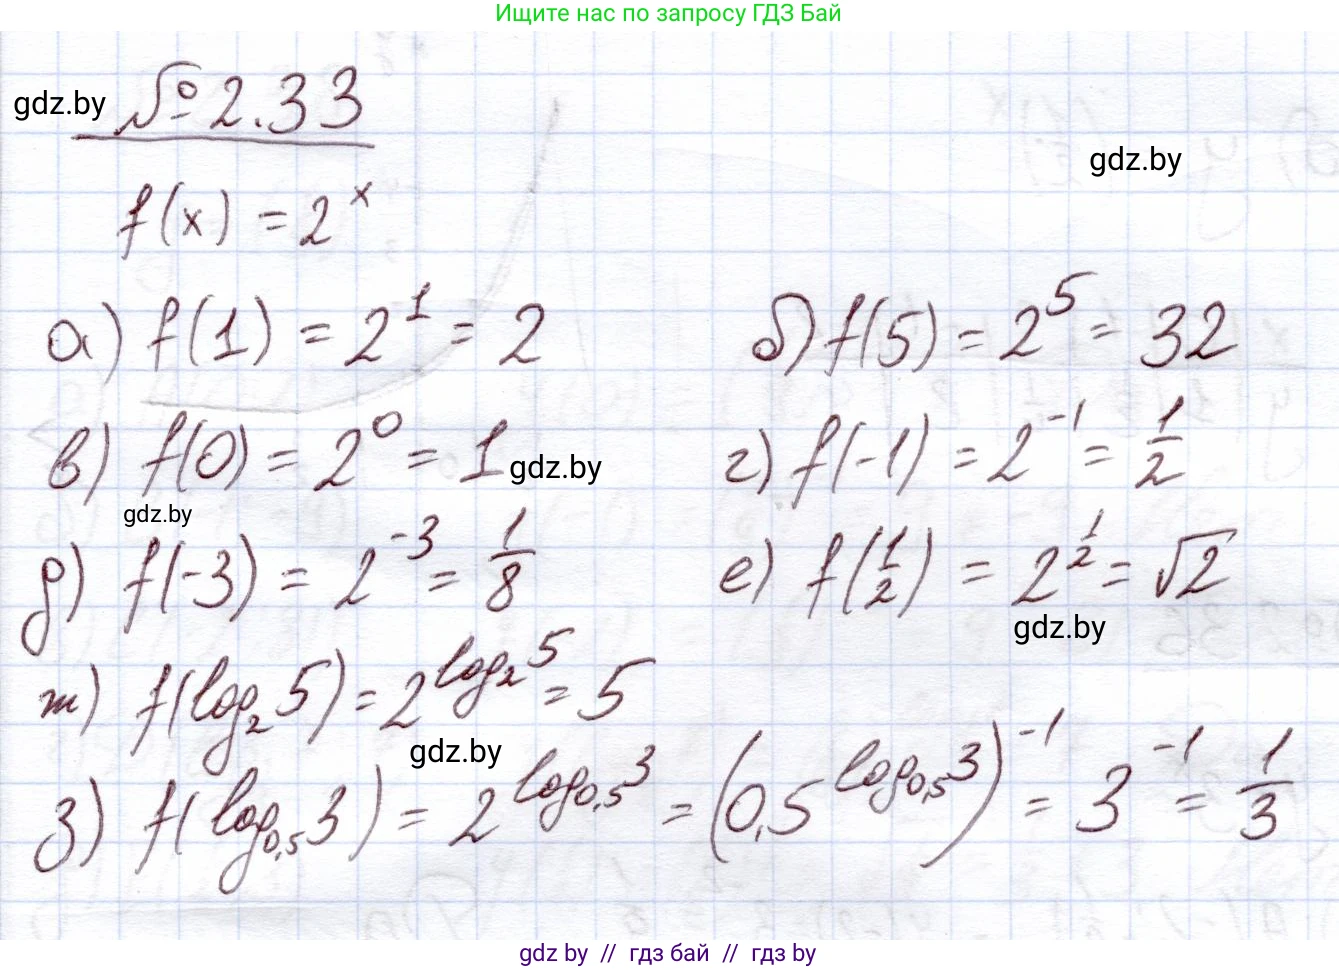 Ищите нас по запросу ГДЗ Бай
gdz.by
№ 2.33
gdz.by
f(x) = 2^x
а) f(1) = 2^1 = 2
б) f(5) = 2^5 = 32
в) f(0) = 2^0 = 1
gdz.by
г) f(-1) = 2^-1 = 1/2
gdz.by
д) f(-3) = 2^-3 = 1/8
е) f(1/2) = 2^1/2 = √2
gdz.by
ж) f(log_2 5) = 2^log_2 5 = 5
gdz.by
з) f(log_0,5 3) = 2^log_0,5 3 = (0,5^log_0,5 3)^-1 = 3^-1 = 1/3
gdz.by // гдз бай // гдз by